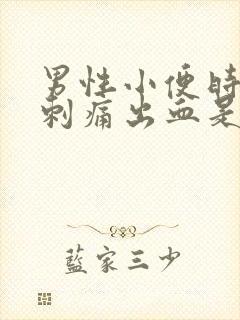 男性小便时
刺痛出血是
蓝家三少